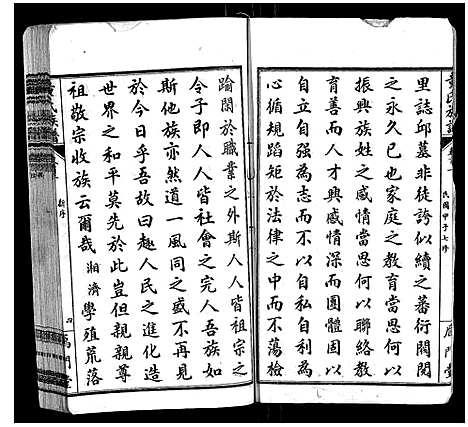 里誌邱墓非徒誇似續之蕃衍閥閱
之永久已也家庭之教育當思何以
振興族姓之感情當思何以聯絡教
育善而人才興感情深而團體固以
自立自強為志而不以自私自利為
心循規蹈矩於法律之中而不蕩檢
踰閑於職業之外斯人人皆祖宗之
令子即人人皆社會之完人吾族如
斯他族亦然道一風同之盛不再見
於今日乎吾故曰趨人民之進化造
世界之和平莫先於此豈但親親尊
祖敬宗收族云爾哉 湘濟學殖荒落
氏族譜
新序
四
民國甲子七修